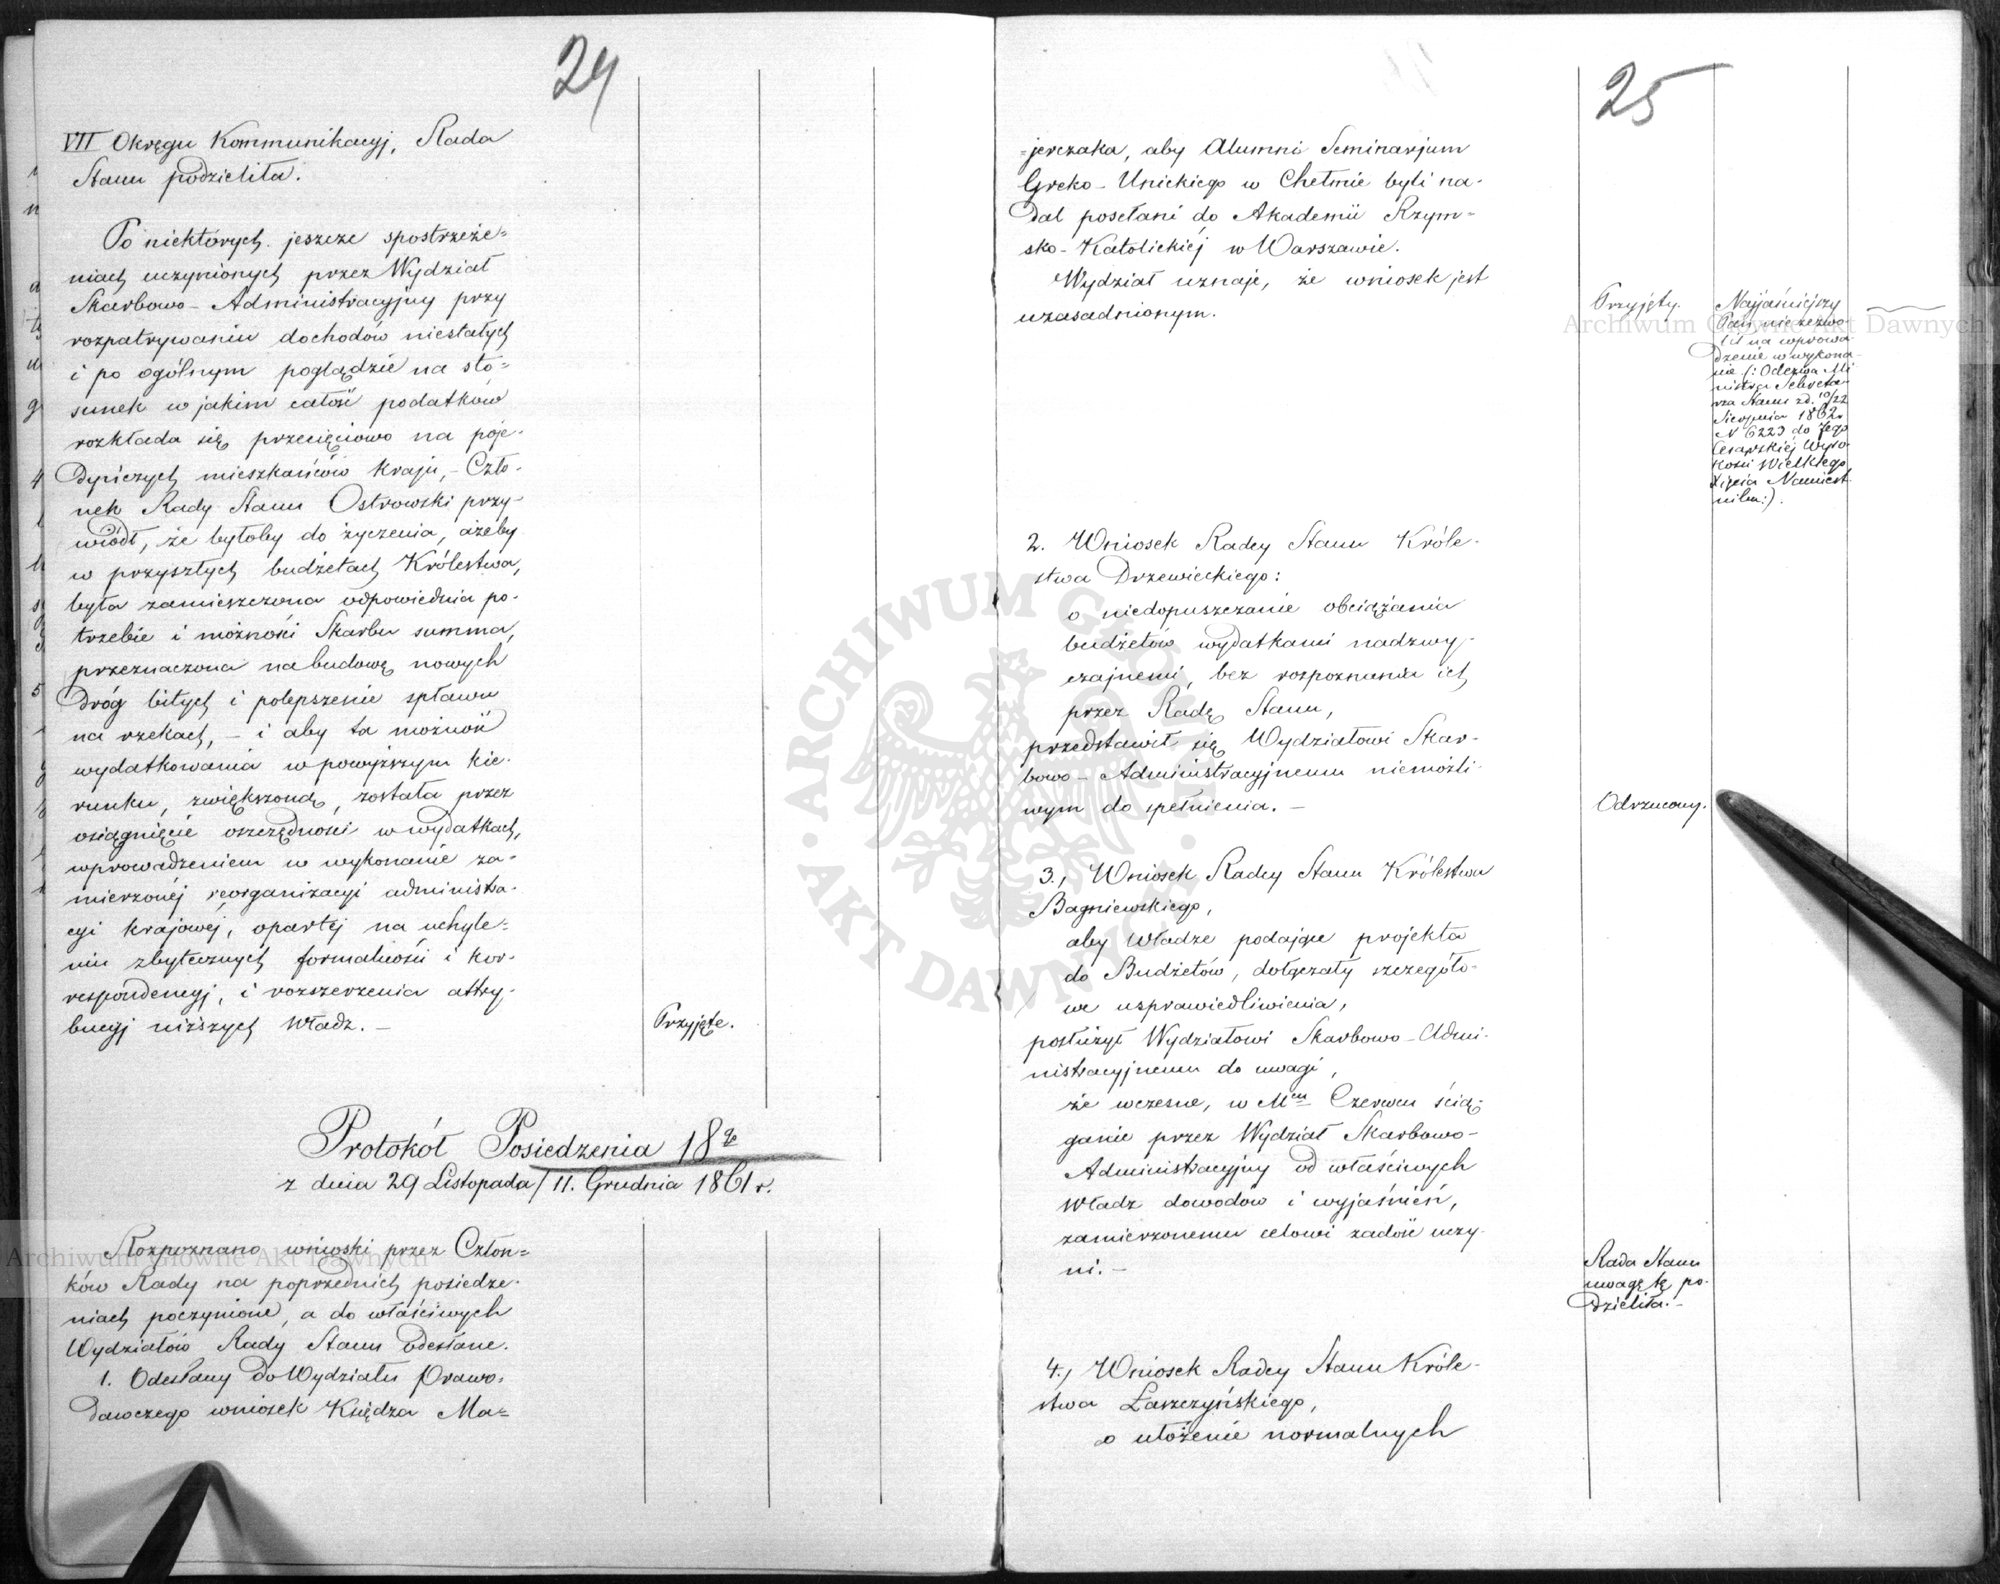 24
VII Okręgu Kommunikacyj, Rada
Stanu podzieliła.
Po niektórych jeszcze spostrzeże=
niach uczynionych przez Wydział
Skarbowo-Administracyjny przy
rozpatrywaniu dochodów niestałych
i po ogólnym poglądzie na sto=
sunek w jakim całość podatków
rozkłada się przecięciowo na poje-
dyńczych mieszkańców kraju, - Czło-
nek Rady Stanu Ostrowski przy-
wiódł, że byłoby do życzenia, ażeby
w przyszłych budżetach Królestwa,
była zamieszczona odpowiednia po-
trzebie i możności Skarbu summa,
przeznaczona na budowę nowych
dróg bitych i polepszenie spławu
na rzekach, - i aby ta możność
wydatkowania w powyższym kie-
runku, zwiększoną, została przez
osiągnięcie oszczędności w wydatkach,
wprowadzeniem w wykonanie za-
mierzonéj reorganizacyi administra-
cyi krajowéj, opartéj na uchyle=
niu zbytecznych formalności i kor-
respondencyj, i rozszerzenia attry-
bucyj niższych Władz. -
Przyjęte.
Protokół Posiedzenia 18go
z dnia 29 Listopada/11. Grudnia 1861 r.
Rozpoznano wnioski przez Człon=
ków Rady na poprzednich posiedze-
niach poczynione, a do właściwych
Wydziałów Rady Stanu odesłane.
1. Odesłany do Wydziału Prawo-
dawczego wniosek Księdza Ma=
25
=jerczaka, aby Alumni Seminarjum
Greko-Unickiego w Chełmie byli na-
dal posełani do Akademii Rzym=
sko-Katolickiéj w Warszawie.
Wydział uznaje, że wniosek jest
uzasadnionym.
Przyjęty.
Najjaśniejszy
Pan nie zezwo-
lił na wprowa-
dzenie w wykona-
nie (: Odezwa Mi
nistra Sekreta-
rza Stanu z d. 10/22
Sierpnia 1862 r
N 6223 do Jego
Cesarskiéj Wyso-
kości Wielkiego
Xięcia Namiest
nika:).
2. Wniosek Radcy Stanu Króle-
stwa Drzewieckiego:
o niedopuszczanie obciążania
budżetów wydatkami nadzwy-
czajnemi, bez rozpoznania ich
przez Radę Stanu,
przedstawił się Wydziałowi Skar-
bowo-Administracyjnemu niemożli-
wym do spełnienia. -
Odrzucony.
3., Wniosek Radcy Stanu Królestwa
Bagniewskiego,
aby Władze podające projekta
do Budżetów, dołączały szczegóło-
we usprawiedliwienia,
posłużył Wydziałowi Skarbowo-Admi-
nistracyjnemu do uwagi,
że wczesne, w Mcu Czerwcu ścią-
ganie przez Wydział Skarbowo-
Administracyjny od właściwych
Władz dowodów i wyjaśnień,
zamierzonemu celowi zadość uczy-
ni. -
Rada Stanu
uwagę tę po-
dzieliła. -
4., Wniosek Radcy Stanu Króle-
stwa Łaszczyńskiego,
o ułożenie normalnych
Archiwum Główne Akt Dawnych
Archiwum Główne Akt Dawnych
ARCHIWUM GŁÓWNE AKT DAWNYCH